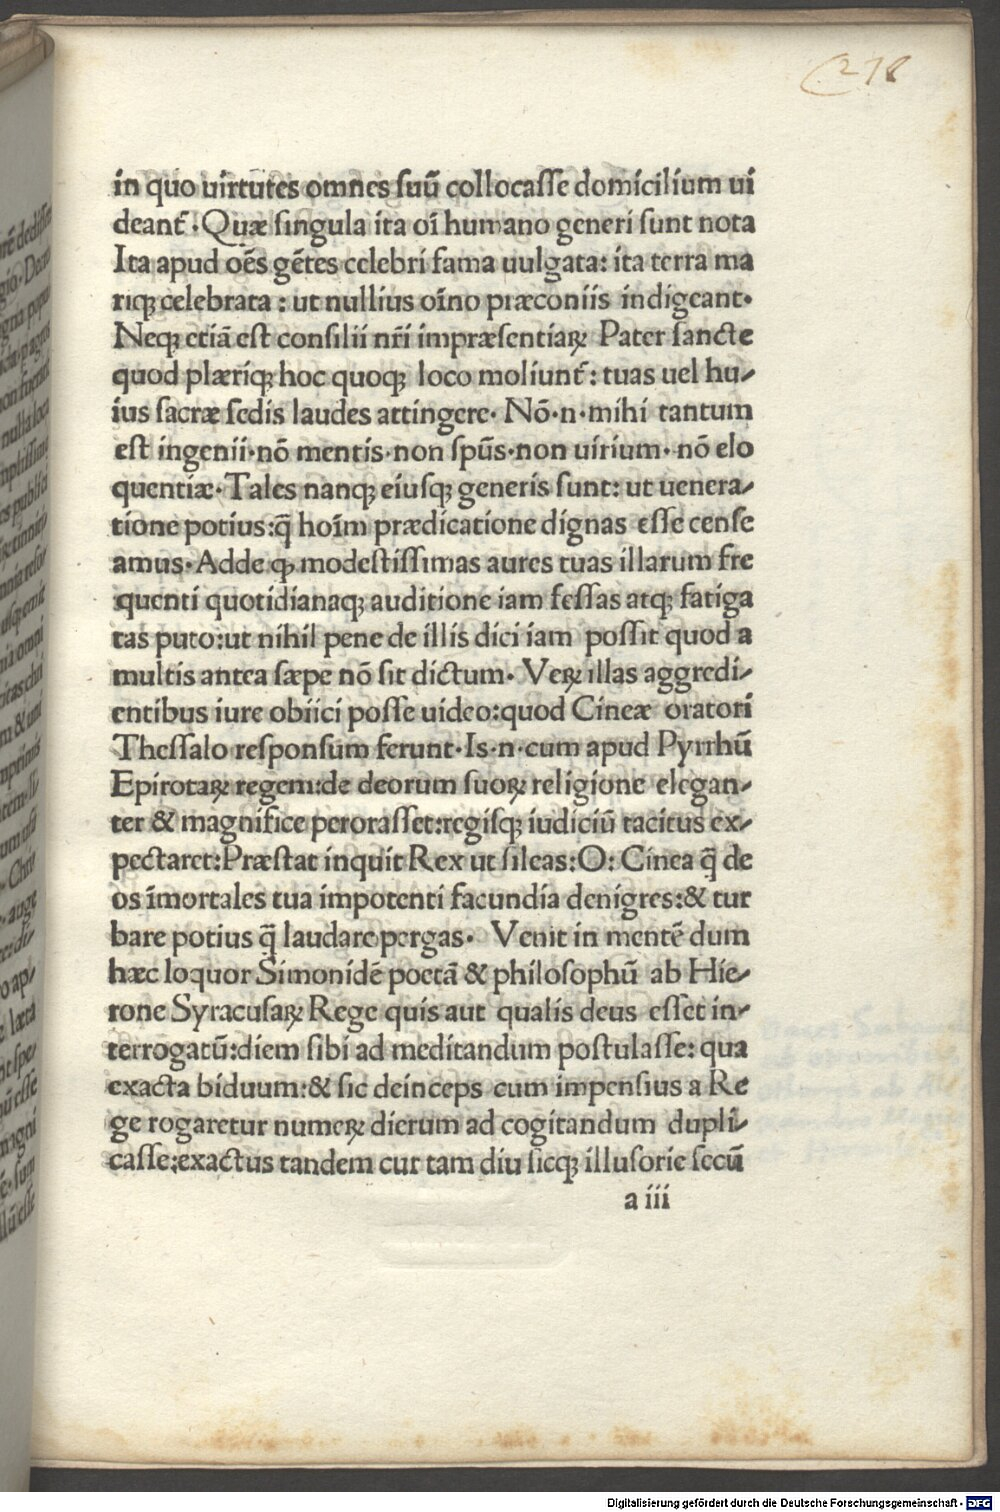 278
in quo uirtutes omnes suū collocasse domicilium ui
deant᷑. Quæ singula ita oī humano generi sunt nota
Ita apud oēs gētes celebri fama uulgata: ita terra ma
riq; celebrata: ut nullius oīno præconiis indigeant.
Neq; etiā est consilii nr̄i impræsentiaꝝ Pater sancte
quod plæriq; hoc quoq; loco moliunt᷑: tuas uel hu-
ius sacræ sedis laudes attingere. Nō.n.mihi tantum
est ingenii.nō mentis.non sp̄us.non uirium.nō elo
quentiæ. Tales nanq; eiusq; generis sunt: ut uenera-
tione potius:q̄ hoīm prædicatione dignas esse cense
amus. Adde ꝙ modestissimas aures tuas illarum fre
quenti quotidianaq; auditione iam fessas atq; fatiga
tas puto:ut nihil pene de illis dici iam possit quod a
multis antea sæpe nō sit dictum. Veꝝ illas aggredi-
entibus iure obiici posse uideo:quod Cineæ oratori
Thessalo responsum ferunt. Is.n.cum apud Pyrrhū
Epirotaꝝ regem:de deorum suoꝝ religione elegan-
ter & magnifice perorasset:regisq; iudiciū tacitus ex-
pectaret:Præstat inquit Rex ut sileas:O: Cinea q̄ de
os īmortales tua impotenti facundia denigres:& tur
bare potius q̄ laudare pergas. Venit in mentē dum
hæc loquor Simonidē poetā & philosophū ab Hie-
rone Syracusaꝝ Rege quis aut qualis deus esset in-
terrogatū:diem sibi ad meditandum postulasse: qua
exacta biduum:& sic deinceps cum impensius a Re
ge rogaretur numeꝝ dierum ad cogitandum dupli-
casse:exactus tandem cur tam diu sicq; illusorie secū
a iii
Digitalisierung gefördert durch die Deutsche Forschungsgemeinschaft - DFG